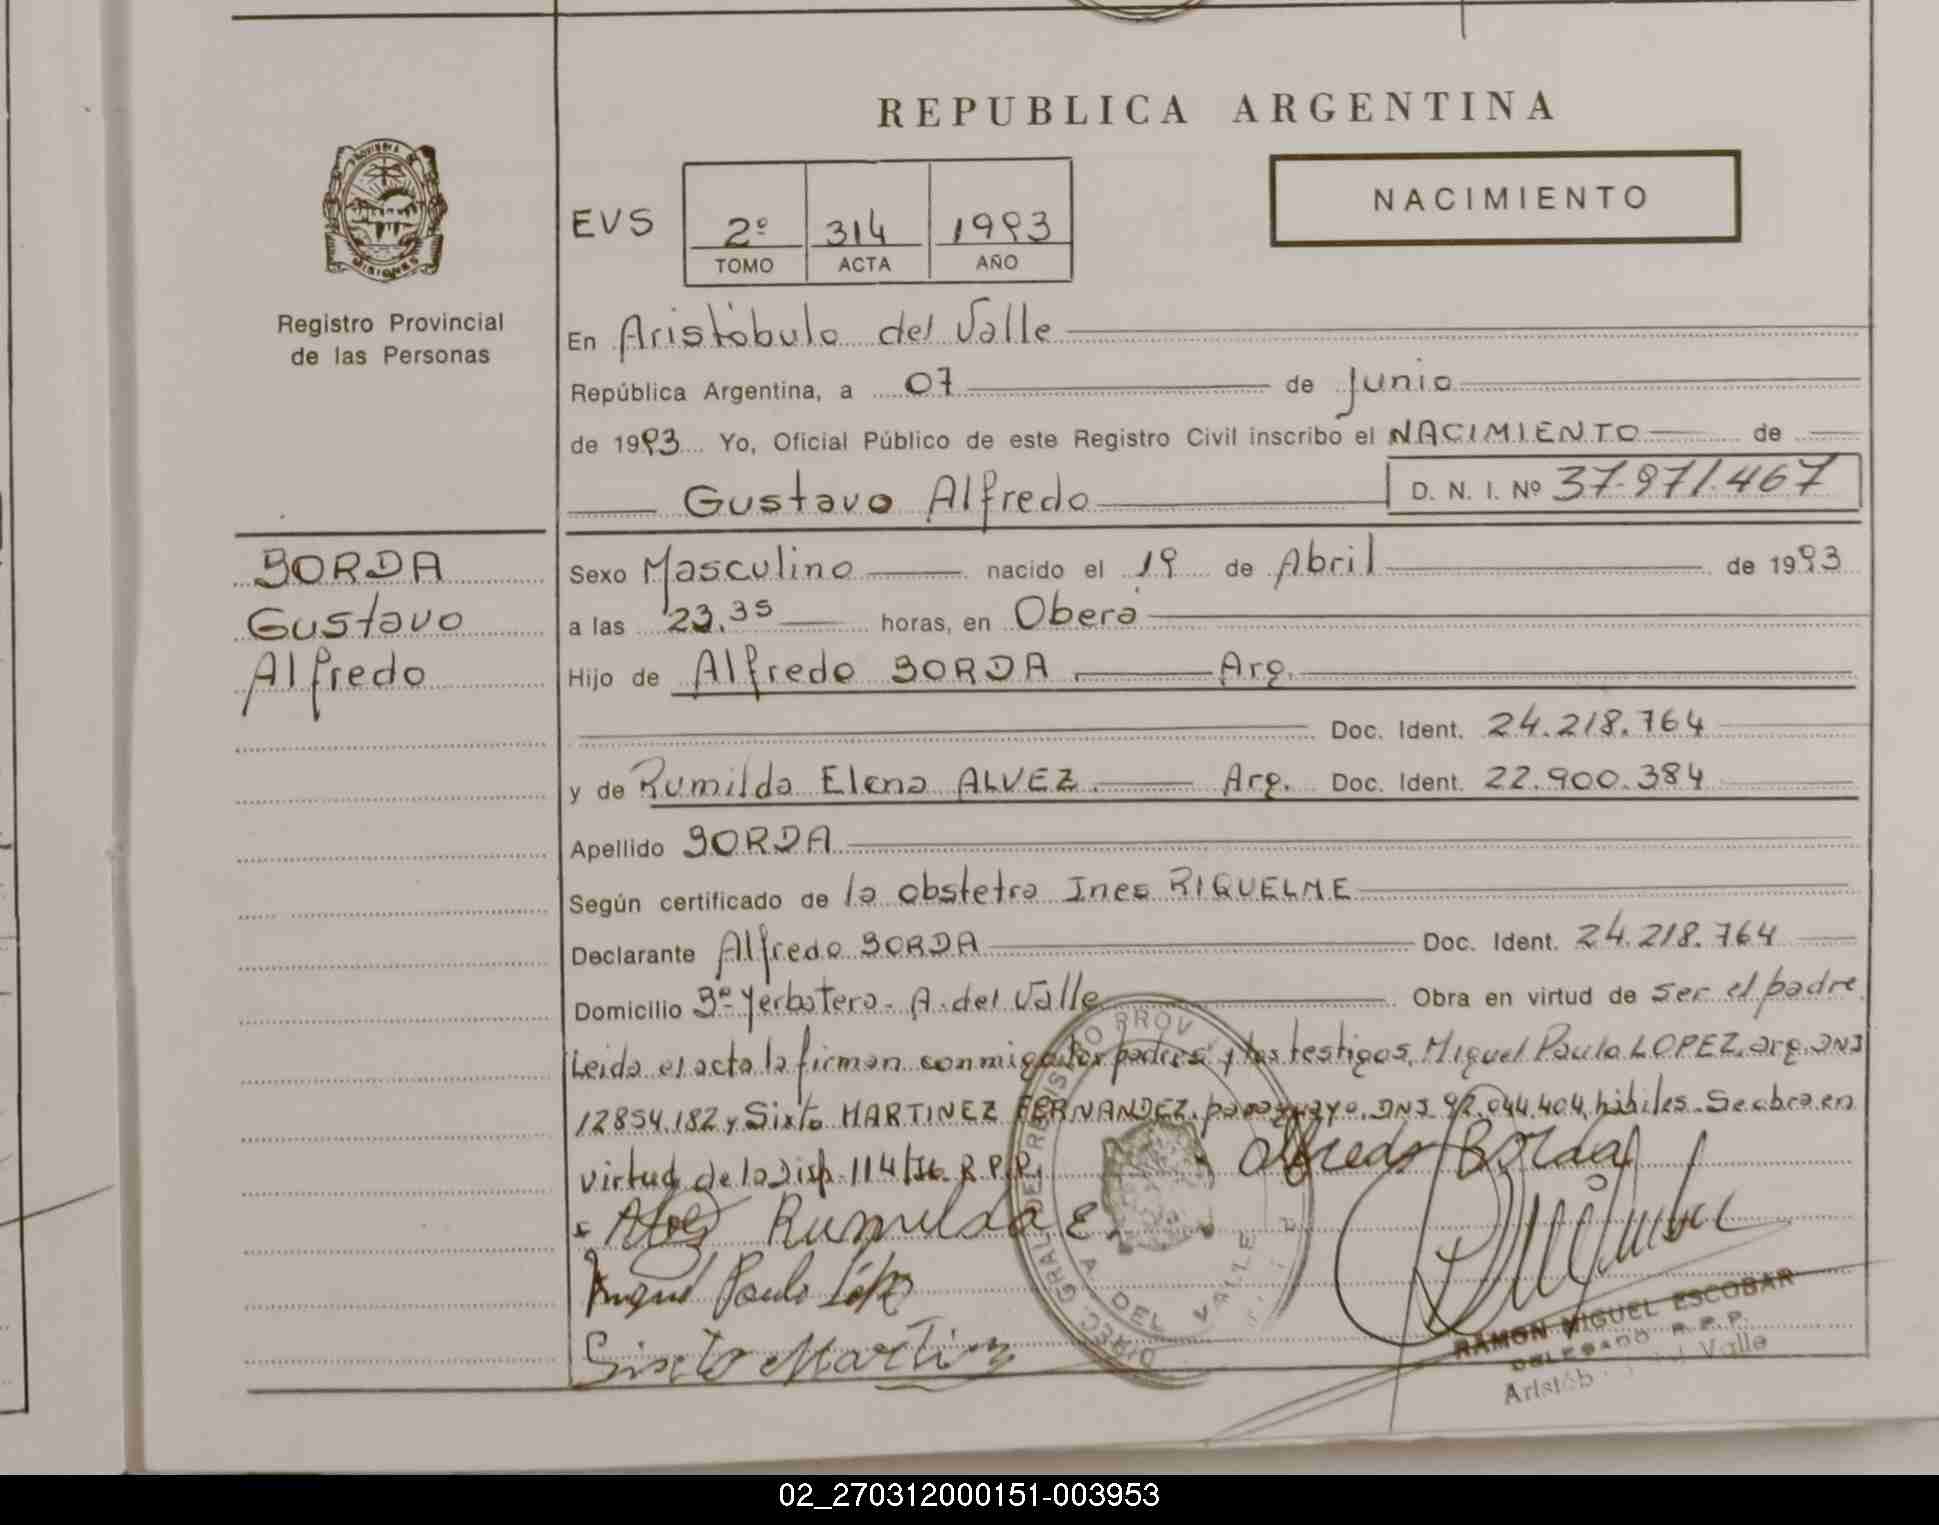 REPUBLICA ARGENTINA
NACIMIENTO
EVS
2º 314 1993
TOMO ACTA AÑO
PROVINCIA DE MISIONES
Registro Provincial
de las Personas
En Aristóbulo del Valle
República Argentina, a 07 de Junio
de 1993 Yo, Oficial Público de este Registro Civil inscribo el NACIMIENTO de
Gustavo Alfredo D. N. I. Nº 37.971.467
BORDA
Gustavo
Alfredo
Sexo Masculino nacido el 19 de Abril de 1993
a las 23,35 horas, en Oberá
Hijo de Alfredo BORDA Arg.
Doc. Ident. 24.218.764
y de Rumilda Elena ALVEZ. Arg. Doc. Ident. 22.900.384
Apellido BORDA
Según certificado de la obstetra Ines RIQUELME
Declarante Alfredo BORDA Doc. Ident. 24.218.764
Domicilio Bº Yerbatero. A. del Valle Obra en virtud de ser el padre.
Leida el acta la firman conmigo los padres y los testigos, Miguel Paulo LOPEZ, arg. DNI
12854.182 y Sixto MARTINEZ FERNANDEZ, paraguayo, DNI 92.044.404, hábiles. Se labra en
virtud de la Disp. 114/ R.P.P.
Alfredo Borda
Rumilda E.
Miguel Paulo López
Sixto Martinez
DIREC. GRAL. DE REGISTRO PROV
DEL VALLE
RAMON MIGUEL ESCOBAR
DELEGADO R.P.P.
Valle
02_270312000151-003953